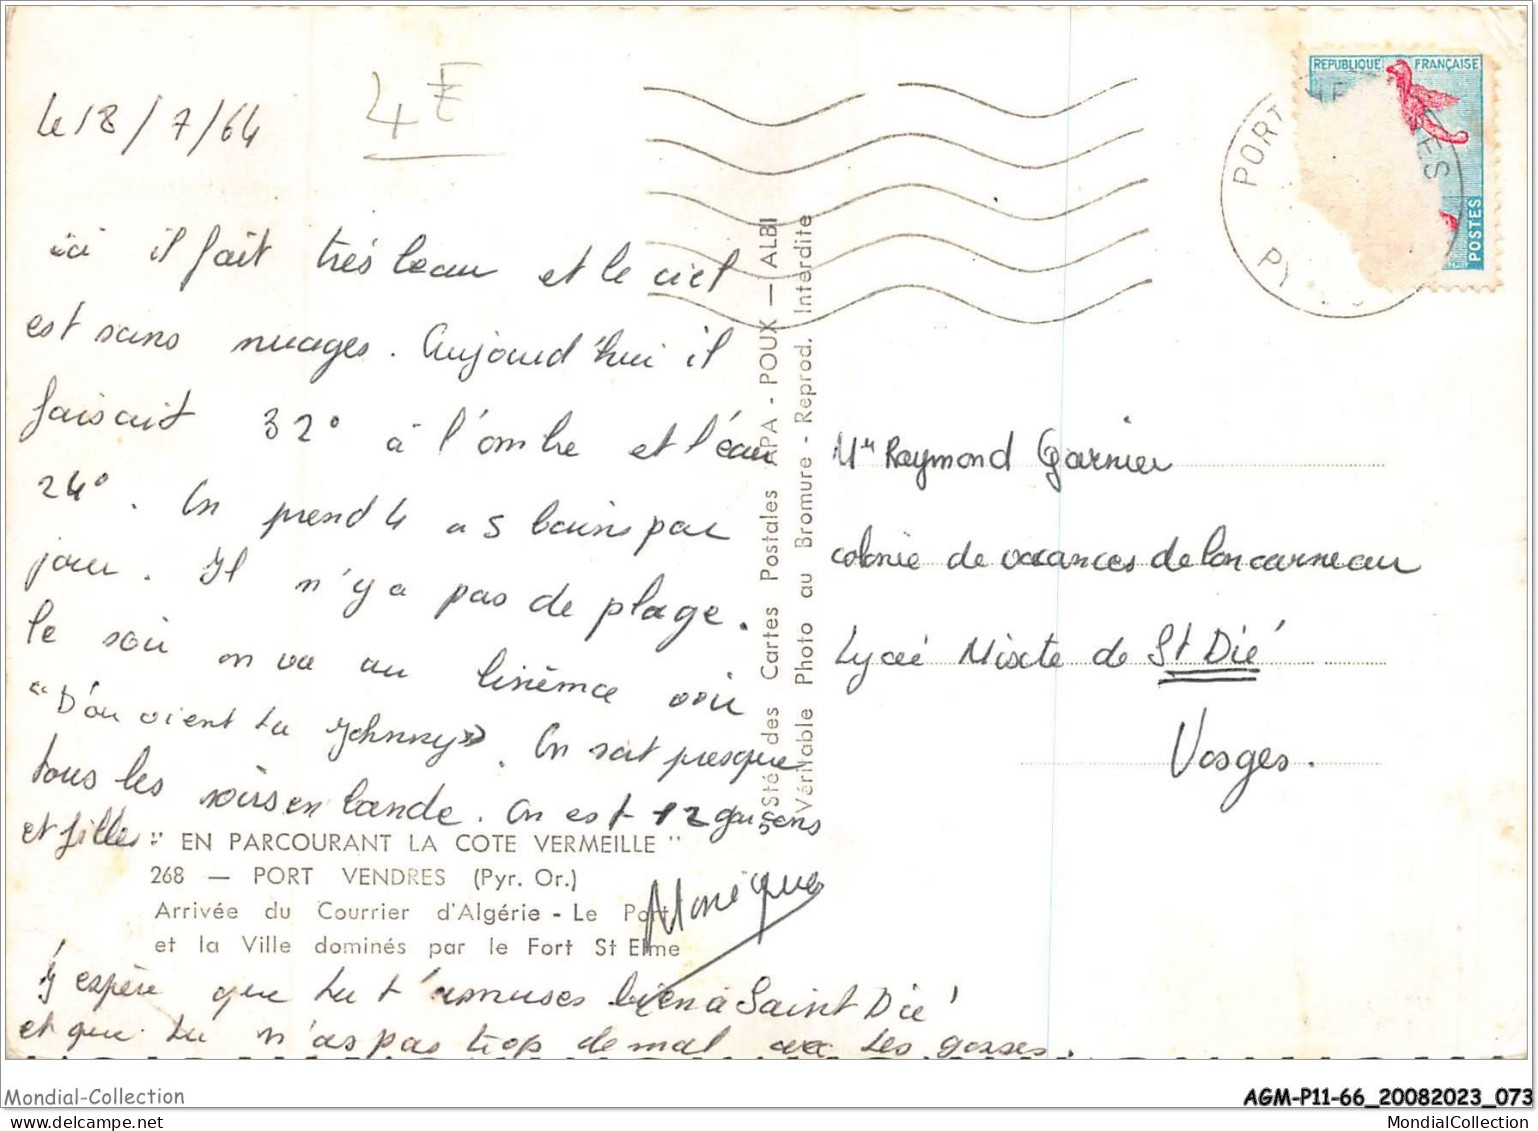 le 18/7/64
4E
ici il fait très beau et le ciel
est sans nuages. Aujourd'hui il
faisait 32° à l'ombre et l'eau
24°. On prend 4 a 5 bains par
jour. Il n'y a pas de plage.
le soir on va au Cinéma voir
"D'ou vient tu Johnny». On sort presque
tous les soirs en bande. On est 12 garçons
et filles
Monique
J'espère que tu t'amuses bien à Saint Dié
et que tu n'as pas trop de mal avec tes gosses.
" EN PARCOURANT LA COTE VERMEILLE "
268 — PORT VENDRES (Pyr. Or.)
Arrivée du Courrier d'Algérie - Le Port
et la Ville dominés par le Fort St Elme
Sté des Cartes Postales APA - POUX — ALBI
Véritable Photo au Bromure - Reprod. Interdite
REPUBLIQUE FRANÇAISE
POSTES
PORT
Mr Raymond Garnier
colonie de vacances de Concarneau
Lycée Mixte de St Dié
Vosges.
Mondial-Collection
AGM-P11-66_20082023_073
MondialCollection